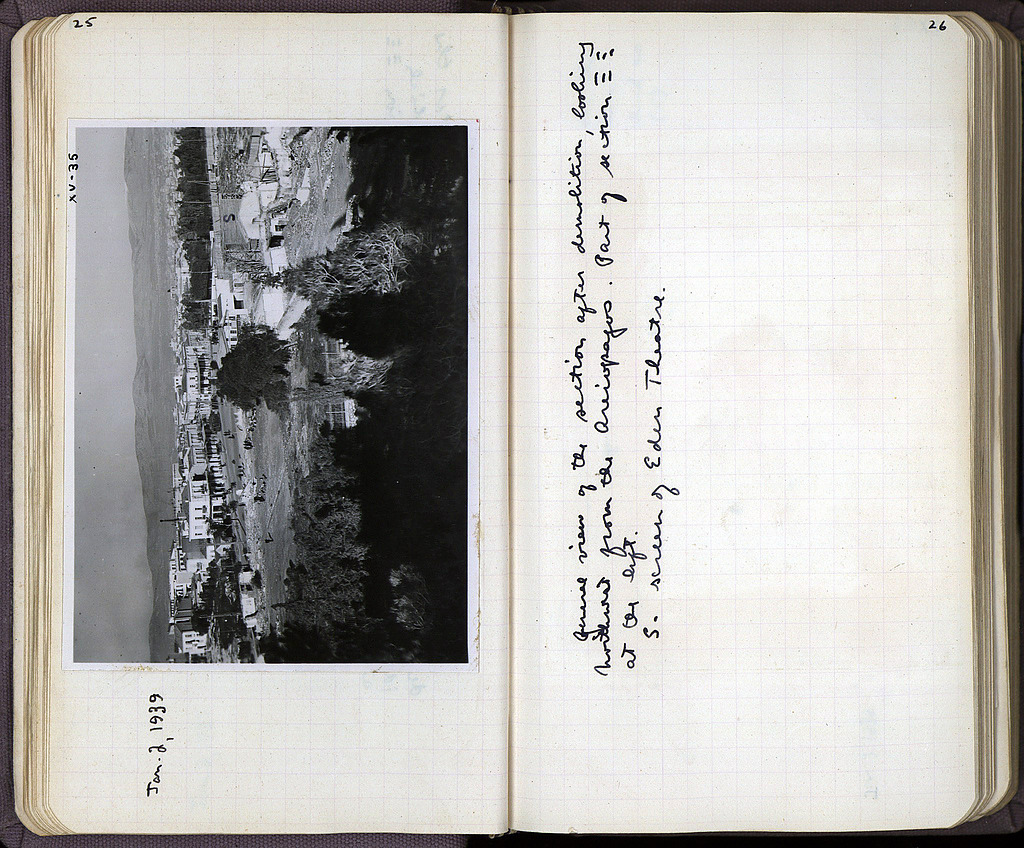 25
XV-35
S
Jan. 2, 1939
26
General view of the section after demolition, looking
Northwest from the Areiopagos. Part of section Ξ Ξ
at the left.
S. screen of Eden Theatre.